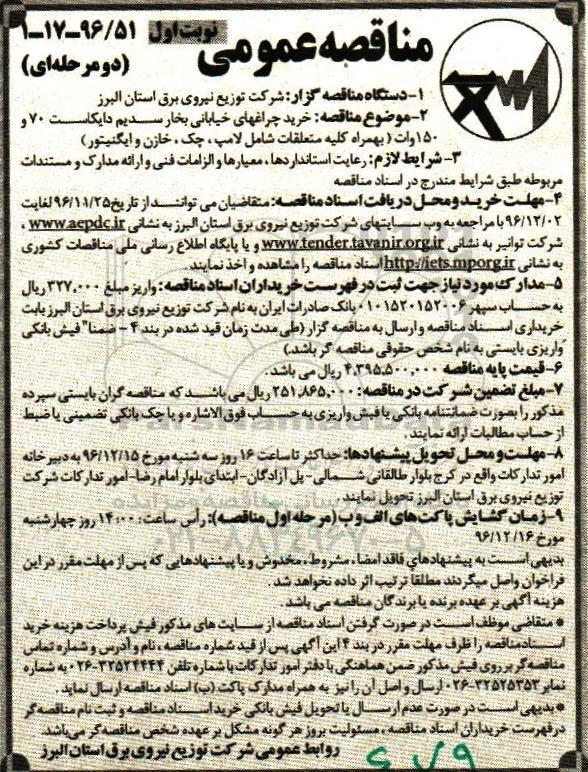 مناقصه عمومی
نوبت اول
۹۶/۵۱-۱۷-۱
(دو مرحله‌ای)
۱-دستگاه مناقصه گزار: شرکت توزیع نیروی برق استان البرز
۲-موضوع مناقصه: خرید چراغهای خیابانی بخار سدیم دایکاست ۷۰ و
۱۵۰ وات ( بهمراه کلیه متعلقات شامل لامپ، چک، خازن و ایگنیتور)
۳-شرایط لازم: رعایت استانداردها، معیارها و الزامات فنی و ارائه مدارک و مستندات
مربوطه طبق شرایط مندرج در اسناد مناقصه
۴-مهلت خرید و محل دریافت اسناد مناقصه: متقاضیان می توانند از تاریخ ۹۶/۱۱/۲۵ لغایت
۹۶/۱۲/۰۲ با مراجعه به وب سایتهای شرکت توزیع نیروی برق استان البرز به نشانی www.aepdc.ir ،
شرکت توانیر به نشانی www.tender.tavanir.org.ir و یا پایگاه اطلاع رسانی ملی مناقصات کشوری
به نشانی http://iets.mporg.ir اسناد مناقصه را مشاهده و اخذ نمایند.
۵-مدارک مورد نیاز جهت ثبت در فهرست خریداران اسناد مناقصه: واریز مبلغ ۳۲۷،۰۰۰ ریال
به حساب سپهر ۰۱۰۱۵۲۰۱۵۲۰۰۶ بانک صادرات ایران به نام شرکت توزیع نیروی برق استان البرز بابت
خریداری اسناد مناقصه و ارسال به مناقصه گزار (طی مدت زمان قید شده در بند ۴ - ضمنا" فیش بانکی
واریزی بایستی به نام شخص حقوقی مناقصه گر باشد)
۶-قیمت پایه مناقصه ۴،۳۹۵،۵۰۰،۰۰۰ ریال می باشد.
۷-مبلغ تضمین شرکت در مناقصه: ۲۵۱،۸۶۵،۰۰۰ ریال می باشد که مناقصه گران بایستی سپرده
مذکور را بصورت ضمانتنامه بانکی یا فیش واریزی به حساب فوق الاشاره و یا چک بانکی تضمینی یا ضبط
از حساب مطالبات ارائه نمایند.
۸-مهلت و محل تحویل پیشنهادها: حداکثر تا ساعت ۱۶ روز سه شنبه مورخ ۹۶/۱۲/۱۵ به دبیرخانه
امور تدارکات واقع در کرج بلوار طالقانی شمالی- پل آزادگان- ابتدای بلوار امام رضا- امور تدارکات شرکت
توزیع نیروی برق استان البرز تحویل نمایند.
۹-زمان گشایش پاکت های الف و ب (مرحله اول مناقصه): رأس ساعت: ۱۴:۰۰ روز چهارشنبه
مورخ ۹۶/۱۲/۱۶
بدیهی است به پیشنهادهای فاقد امضاء، مشروط، مخدوش و یا پیشنهادهایی که پس از مهلت مقرر در این
فراخوان واصل میگردند مطلقا ترتیب اثر داده نخواهد شد.
هزینه آگهی بر عهده برنده یا برندگان مناقصه می باشد.
* متقاضی موظف است در صورت گرفتن اسناد مناقصه از سایت های مذکور فیش پرداخت هزینه خرید
اسناد مناقصه را ظرف مهلت مقرر در بند ۴ این آگهی پس از قید شماره مناقصه، نام و آدرس و شماره تماس
مناقصه گر بر روی فیش مذکور ضمن هماهنگی با دفتر امور تدارکات با شماره تلفن ۰۲۶-۳۲۵۲۴۴۴۴ به شماره
نمابر ۰۲۶-۳۲۵۲۵۳۵۳ ارسال و اصل آن را نیز به همراه مدارک پاکت (ب) اسناد مناقصه ارسال نماید.
*بدیهی است در صورت عدم ارسال یا تحویل فیش بانکی خرید اسناد مناقصه و ثبت نام مناقصه گر
در فهرست خریداران اسناد مناقصه، مسئولیت بروز هر گونه مشکل بر عهده شخص مناقصه گر می‌باشد.
روابط عمومی شرکت توزیع نیروی برق استان البرز